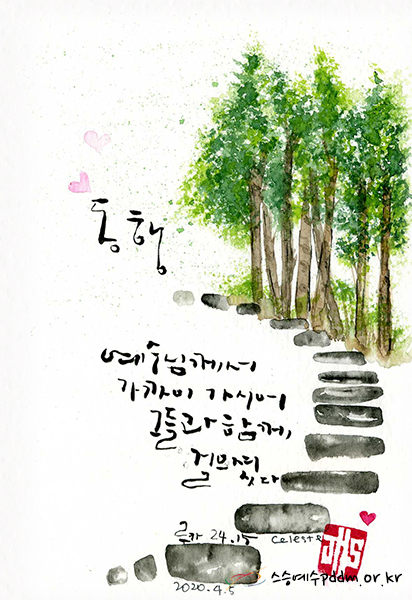 동행
예수님께서
가까이 가시어
그들과 함께
걸으셨다
루카 24.15 Celeste
JHS
2020.4.5
스승예수pddm.or.kr